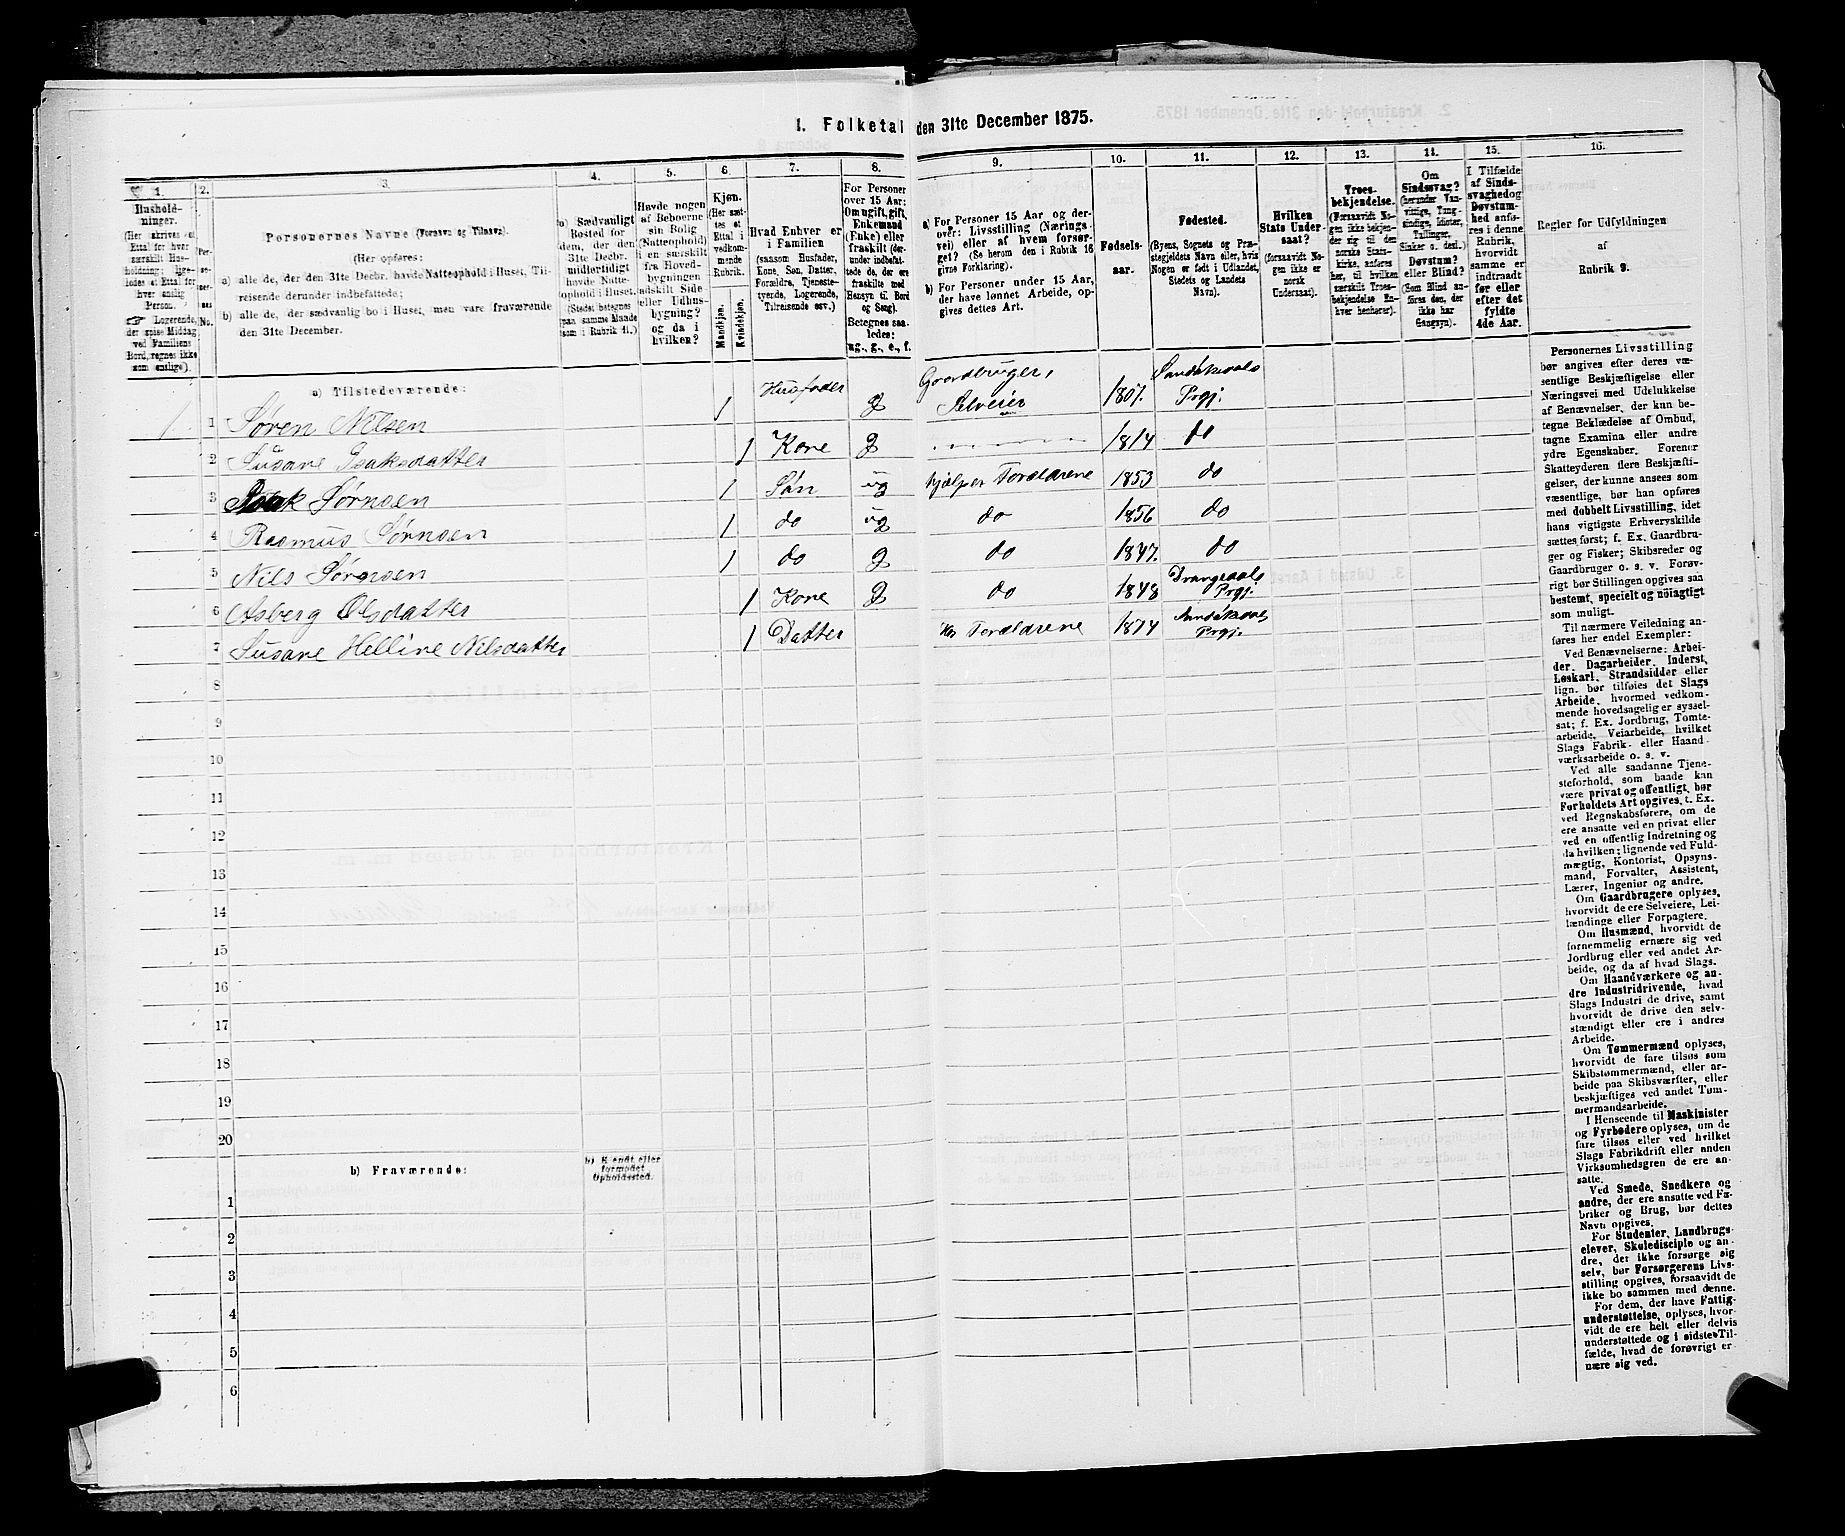 1. Folketal den 31te December 1875.
1. 2. 3. 4. 5. 6. 7. 8. 9. 10. 11. 12. 13. 14. 15. 16.
Husholdninger.
(Her skrives et
Ettal for hver
særskilt Husholdning;
ligeledes et Ettal for
hver enslig
Person.
☞ Logerende,
der spise Middag
ved Familiens
Bord, regnes ikke
som enslige).
Personernes No.
Personernes Navne (Fornavn og Tilnavn).
(Her opføres:
a) alle de, der den 31te Decbr. havde Natteophold i Huset, Tilreisende derunder indbefattede;
b) alle de, der sædvanlig bo i Huset, men vare fraværende
den 31te December.
a) Sædvanligt
Bosted for
dem, der den
31te Decbr.
midlertidigt
havde Natteophold i Huset.
(Stedet betegnes
paa samme Maade
som i Rubrik 11.)
Havde nogen
af Beboerne
sin Bolig
(Natteophold)
i en særskilt
fra Hovedbygningen
adskilt Side-
eller Udhusbygning?
og da i
hvilken?
Kjøn.
(Her sættes et
Ettal i
vedkommende
Rubrik.
Mandkjøn.
Kvindekjøn.
Hvad Enhver er
i Familien
(saasom Husfader,
Kone, Søn, Datter,
Forældre, Tjenestetyende, Logerende,
Tilreisende osv.)
For Personer
over 15 Aar:
Om ugift, gift,
Enkemand
(Enke) eller
fraskilt (derunder indbefattede de, der ere
fraskilte med
Hensyn til Bord
og Seng).
Betegnes saaledes:
ug., g., e., f.
a) For Personer 15 Aar og derover: Livsstilling (Næringsvei) eller af hvem forsørget? (Se herom den i Rubrik 16
givne Forklaring).
b) For Personer under 15 Aar,
der have lønnet Arbeide, opgives dettes Art.
Fødselsaar.
Fødested.
(Byens, Sognets og Præstegjeldets Navn eller, hvis
Nogen er født i Udlandet,
Stedets og Landets
Navn).
Hvilken
Stats Undersaat?
(forsaavidt Nogen ikke er
norsk
Undersaat).
Troesbekjendelse.
(Forsaavidt Nogen ikke bekjender sig til den
norske Statskirke, anføres
her, til hvilken
særskilt Troesbekjendelse Enhver henhører).
Om
Sindssvag?
(herunder Vanvittige, Tungsindige, Idioter,
Tullinger,
Sinker o. desl.)
Døvstum?
eller Blind?
(Som Blind anføres den, der
ikke har
Gangsyn).
I Tilfælde
af Sindssvaghed og
Døvstumhed anføres i denne
Rubrik,
hvorvidt
samme er
indtraadt
før eller
efter det
fyldte
4de Aar.
Regler for Udfyldningen
af
Rubrik 9.
a) Tilstedeværende:
1 1 Søren Nilsen 1 Husfader g Gaardbruger, Selveier 1807. Sandøkedals Prgj.
2 Susane Isaksdatter 1 Kone g 1814 do
3 Isak Sørnsen 1 Søn ug hjelper Forældrene 1853 do
4 Rasmus Sørnsen 1 do ug do 1856 do
5 Nils Sørensen 1 do g do 1847. do
6 Asberg Olsdatter 1 Kone g do 1848 Drangedals Prgj.
7 Susane Helline Nilsdatter 1 Datter Forældrene 1874 Sandøkedals Prgj.
8
9
10
11
12
13
14
15
16
17
18
19
20
b) Fraværende:
b) Kjendt eller
formodet
Opholdssted.
1
2
3
4
5
6
Personernes Livsstilling
bør angives efter deres væsentlige Beskjæftigelse eller
Næringsvei med Udelukkelse
af Benævnelser, der kun betegne Beklædelse af Ombud,
tagne Examina eller andre
ydre Egenskaber. Forener
Skatteyderen flere Beskjæftigelser, der kunne ansees som
væsentlige, bør han opføres
med dobbelt Livsstilling, idet
hans vigtigste Erhvervskilde
sættes først; f. Ex. Gaardbruger og Fisker; Skibsreder og
Gaardbruger o. s. v. Forøvrigt bør Stillingen opgives saa
bestemt, specielt og nøiagtigt
som muligt.
Til nærmere Veiledning anføres her endel Exempler:
Ved Benævnelserne: Arbeider, Dagarbeider, Inderst,
Løskarl, Strandsidder eller
lign. bør tilføies det Slags
Arbeide, hvormed vedkommende hovedsagelig er sysselsat; f. Ex. Jordbrug, Tomtearbeide, Veiarbeide, hvilket
Slags Fabrik- eller Haandværksarbeide o. s. v.
Ved alle saadanne Tjenesteforhold, som baade kan
være privat og offentligt, bør
Forholdets Art opgives, t. Ex.
ved Regnskabsførere, om de
ere ansatte ved en privat eller
ved en offentlig Indretning og
da hvilken; lignende ved Fuldmægtig, Kontorist, Opsynsmand, Forvalter, Assistent,
Lærer, Ingeniør og andre.
Om Gaardbrugere oplyses,
hvorvidt de ere Selveiere, Leilændinge eller Forpagtere.
Om Husmænd, hvorvidt de
fornemmelig ernære sig ved
Jordbrug eller ved andet Arbeide, og da af hvad Slags.
Om Haandværkere og andre Industridrivende, hvad
Slags Industri de drive, samt
hvorvidt de drive den selvstændigt eller ere i andres
Arbeide.
Om Tømmermænd oplyses,
hvorvidt de fare tilsøs som
Skibstømmermænd, eller arbeide paa Skibsværfter, eller
beskjæftiges ved andet Tømmermandsarbeide.
I Henseende til Maskinister
og Fyrbødere oplyses, om de
fare tilsøs eller ved hvilket
Slags Fabrikdrift eller anden
Virksomhedsgren de ere ansatte.
Ved Smede, Snedkere og
andre, der ere ansatte ved Fabriker og Brug, bør dettes
Navn opgives.
For Studenter, Landbrugselever, Skoledisciple og andre, der ikke forsørge sig
selv, bør Forsørgerens Livsstilling opgives, forsaavidt de
ikke bo sammen med denne.
For dem, der have Fattigunderstøttelse, oplyses, hvorvidt de ere helt eller delvis
understøttede og i sidste Tilfælde, hvad de forøvrigt ernære sig ved.